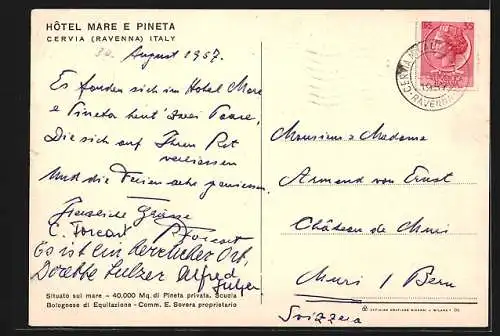 HÔTEL MARE E PINETA
CERVIA (RAVENNA) ITALY
30. August 1957.
Es fanden sich im Hotel Mare
e Pineta heut' zwei Paare,
Die sich auf Ihren Rat
verliessen
Und die Ferien sehr geniessen.
Herzliche Grüsse
C. Forcart
Forcart
Es ist ein herrlicher Ort,
Dorette Sulzer Alfred
Sulzer
Situato sul mare - 40.000 Mq. di Pineta privata. Scuola
Bolognese di Equitazione - Comm. E. Severa proprietario
35 35
CERVIA
1957
RAVENNA
Monsieur & Madame
Armand von Ernst
Château de Muri
Muri / Bern
Svizzera